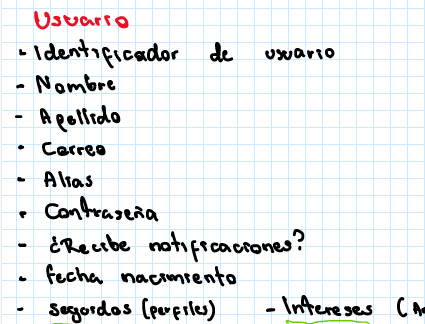 Usuario
- Identificador de usuario
- Nombre
- Apellido
- Correo
- Alias
- Contraseña
- ¿Recibe notificaciones?
- fecha nacimiento
- seguidos (perfiles) - Intereses (